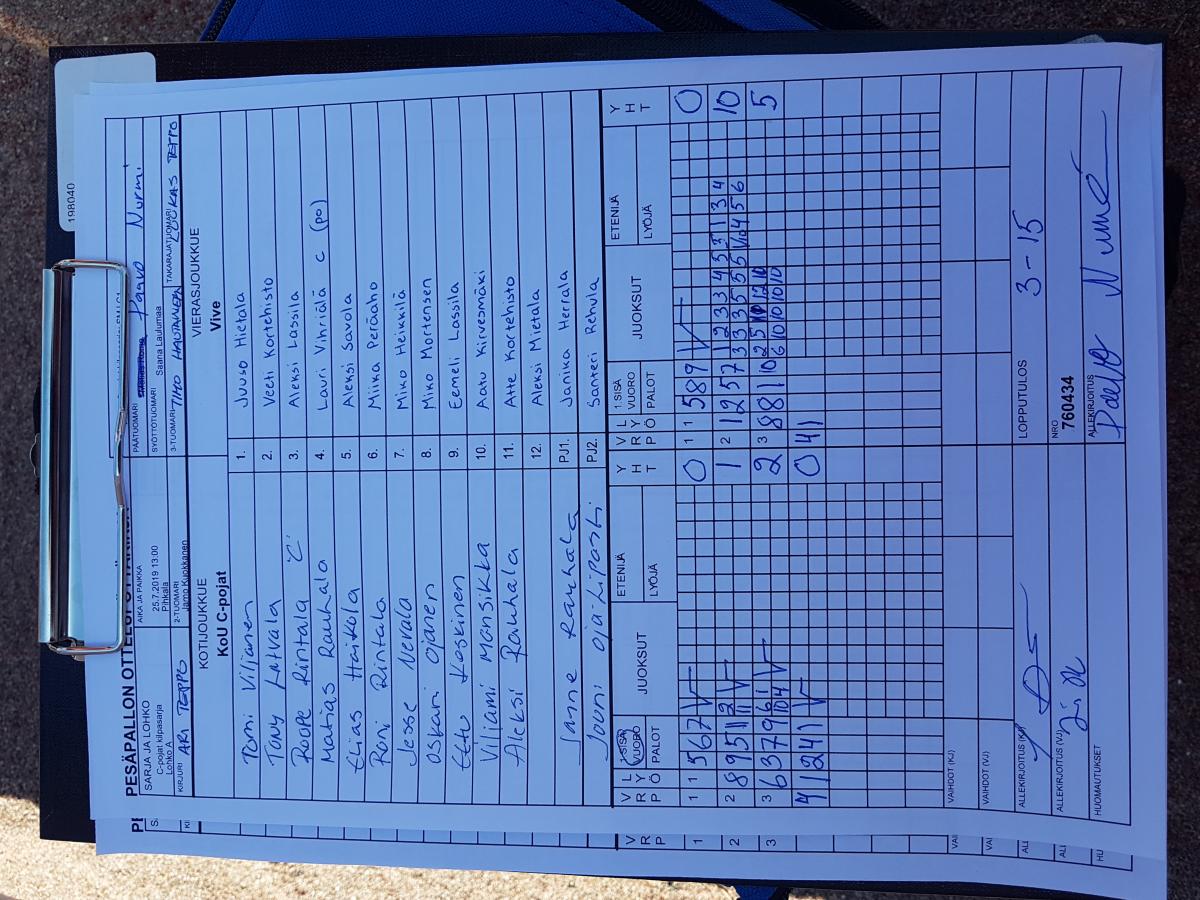 198040
PESÄPALLON OTTELUPÖYTÄKIRJA
SARJA JA LOHKO
C-pojat kilpasarja
Lohko A
AIKA JA PAIKKA
25.7.2019 13:00
Pihkala
PÄÄTUOMARI
Paavo Nurmi
SYÖTTÖTUOMARI
Saana Laulumaa
KIRJURI ARI TEPPO
2-TUOMARI
Jarno Kuokkanen
3-TUOMARI TIMO HAUTANEN
TAKARAJATUOMARI LUUKAS TEPPO
KOTIJOUKKUE
KoU C-pojat
VIERASJOUKKUE
Vive
Tomi Viljanen 1. Juuso Hietala
Tony Latvala 2. Veeti Kortehisto
Roope Rintala C 3. Aleksi Lassila
Matias Rauhala 4. Lauri Vihriälä c (po)
Elias Haikola 5. Aleksi Savola
Roni Rintala 6. Miika Peräaho
Jesse Nevala 7. Miko Heikkilä
Oskari Ojanen 8. Miko Mortensen
Eetu Koskinen 9. Eemeli Lassila
Viljami Mansikka 10. Aatu Kirvesmäki
Aleksi Rauhala 11. Atte Kortehisto
12. Aleksi Mietala
Janne Rauhala PJ1. Janika Herrala
Jouni Ojalipasti PJ2. Santeri Rehula
VRP LYÖ 1.SISÄ VUORO PALOT JUOKSUT ETENIJÄ LYÖJÄ YHT
VRP LYÖ 1.SISÄ VUORO PALOT JUOKSUT ETENIJÄ LYÖJÄ YHT
1 1 5 6 7 V 0
1 1 5 8 9 V 0
2 8 9 5 11 V 1
2 1 2 5 7 10
3 6 3 7 9 V 2
3 8 8 1 10 5
4 1 2 4 1 V 0
4 1
VAIHDOT (KJ)
VAIHDOT (VJ)
ALLEKIRJOITUS (KJ)
LOPPUTULOS 3-15
ALLEKIRJOITUS (VJ)
NRO
760434
HUOMAUTUKSET
ALLEKIRJOITUS
Paavo Nurmi